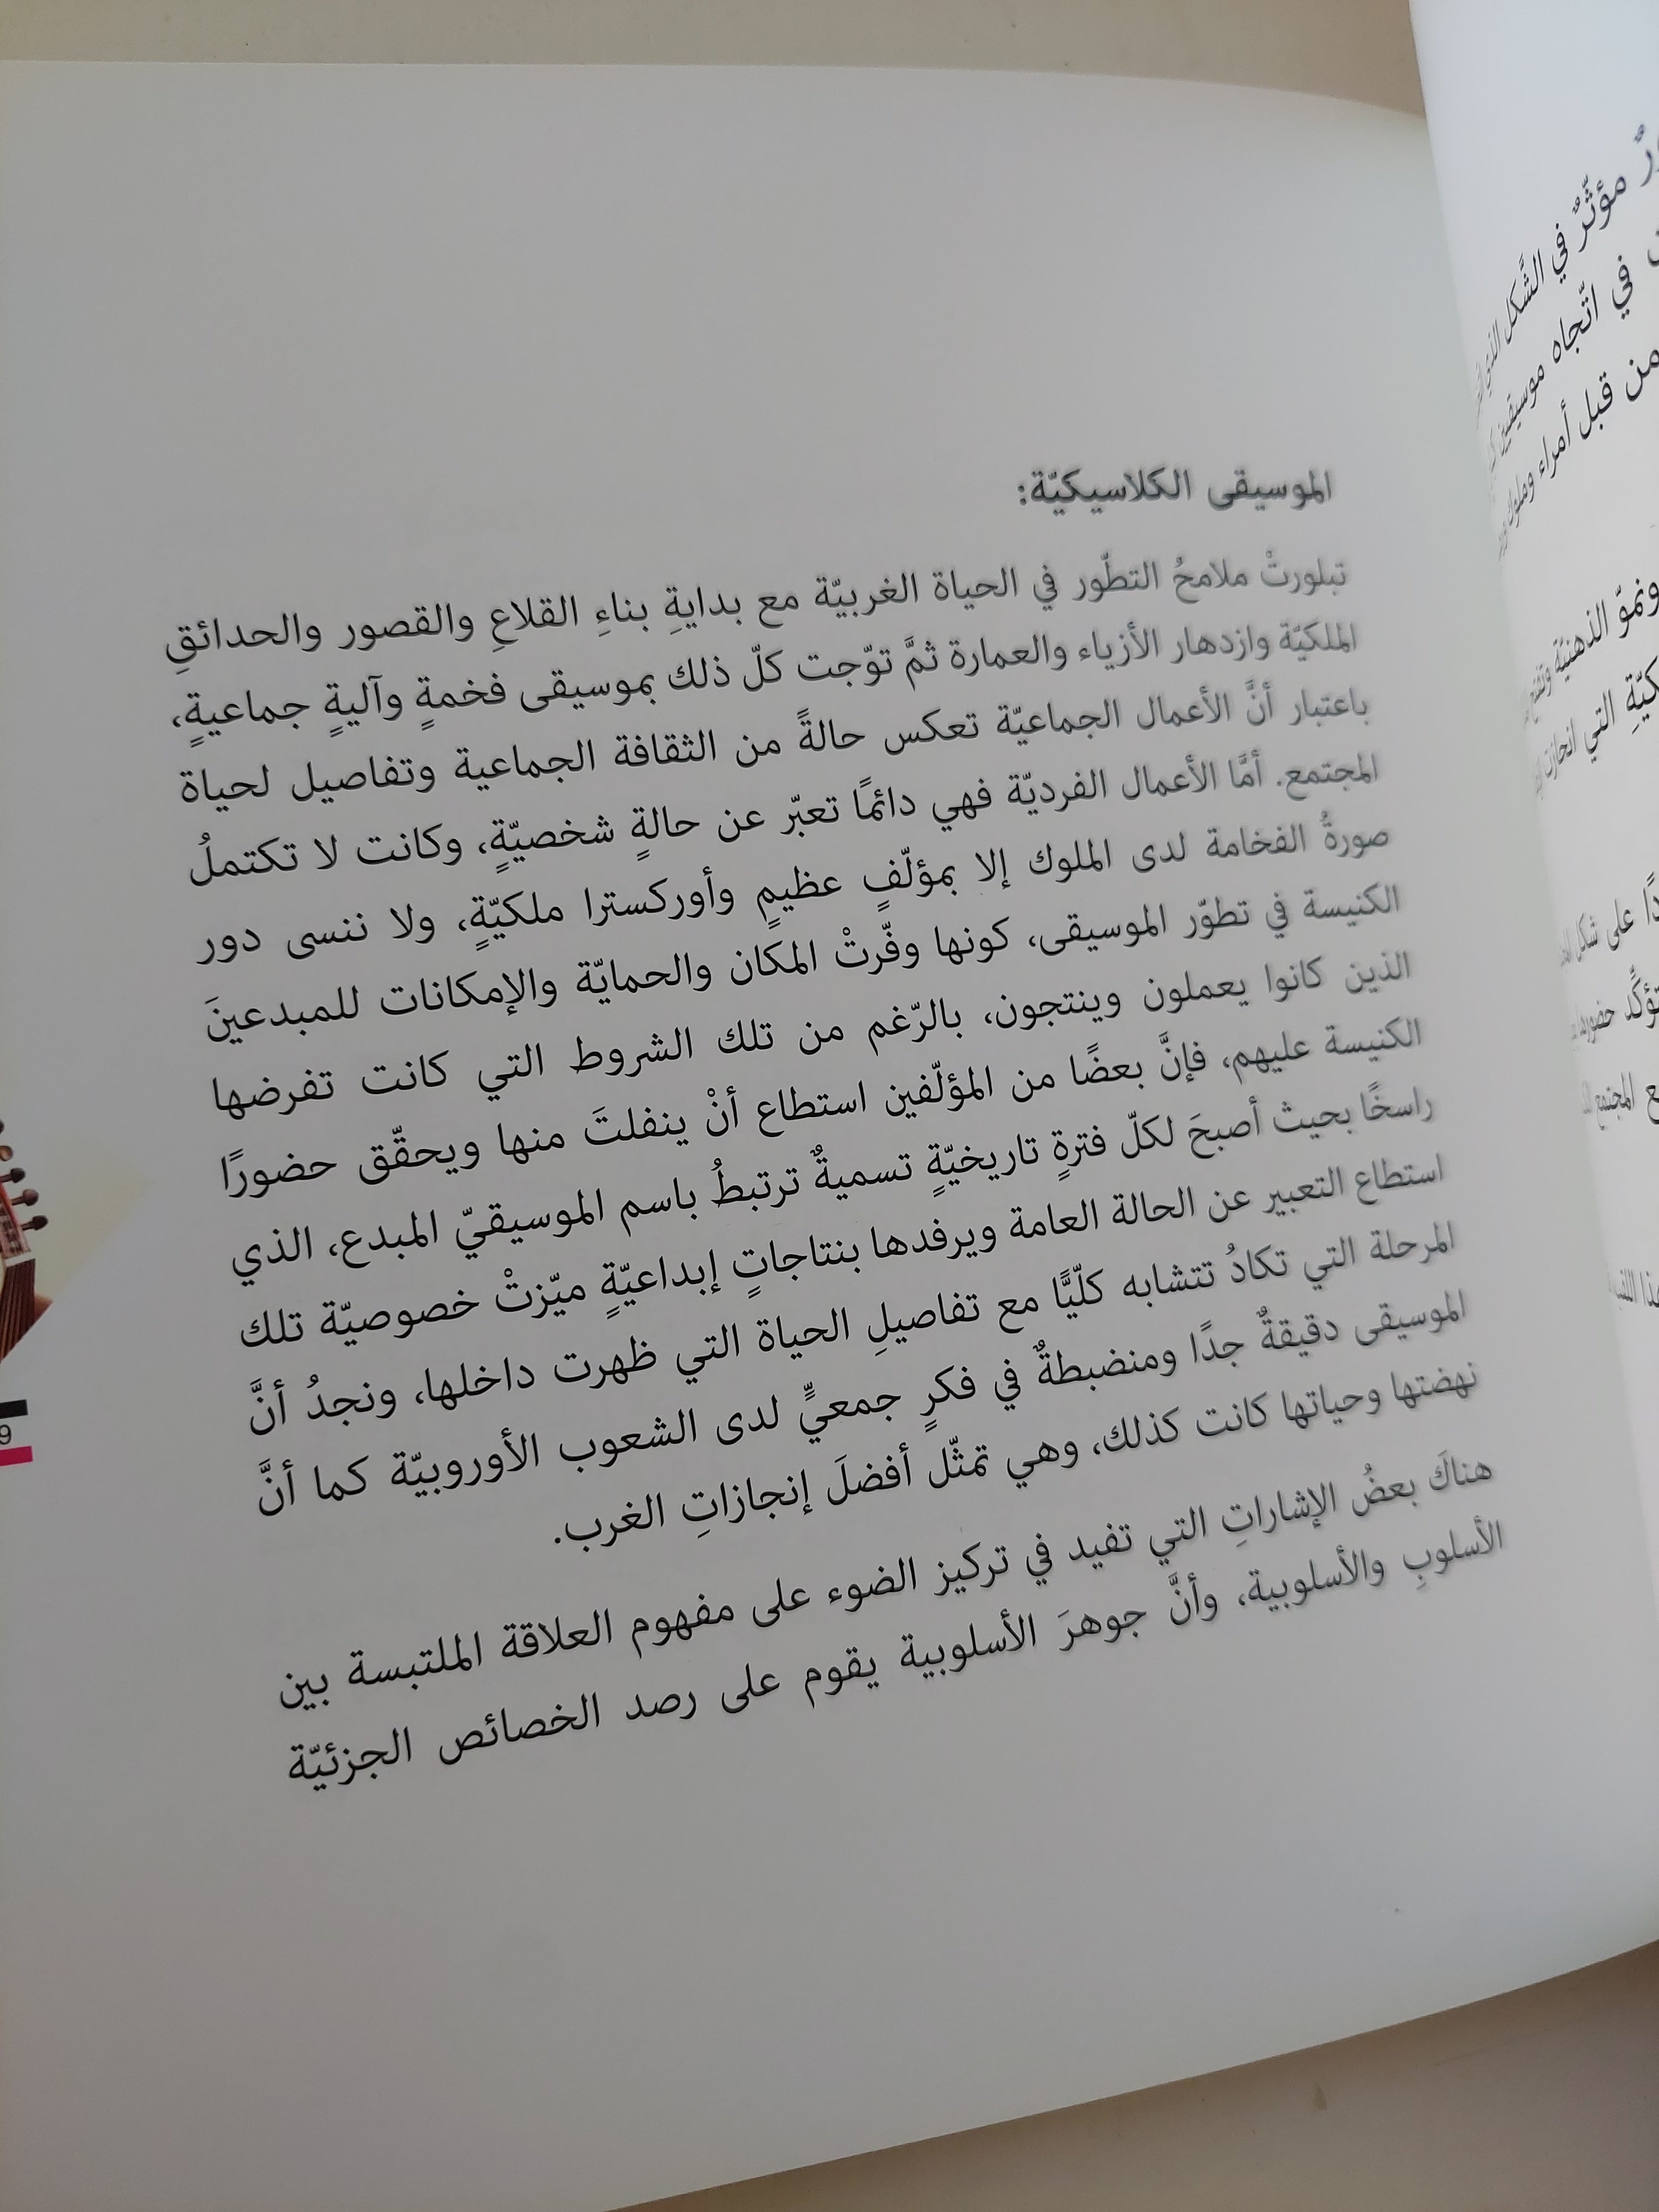 الموسيقى الكلاسيكيّة:
تبلورتْ ملامحُ التطّور في الحياة الغربيّة مع بدايةِ بناءِ القلاعِ والقصور والحدائقِ
الملكيّة وازدهار الأزياء والعمارة ثمَّ توّجت كلّ ذلك بموسيقى فخمةٍ وآليةٍ جماعيةٍ،
باعتبار أنَّ الأعمال الجماعيّة تعكس حالةً من الثقافة الجماعية وتفاصيل لحياة
المجتمع. أمَّا الأعمال الفرديّة فهي دائمًا تعبّر عن حالةٍ شخصيّةٍ، وكانت لا تكتملُ
صورةُ الفخامة لدى الملوك إلا بمؤلّفٍ عظيمٍ وأوركسترا ملكيّةٍ، ولا ننسى دور
الكنيسة في تطوّر الموسيقى، كونها وفّرتْ المكان والحمايّة والإمكانات للمبدعينَ
الذين كانوا يعملون وينتجون، بالرّغم من تلك الشروط التي كانت تفرضها
الكنيسة عليهم، فإنَّ بعضًا من المؤلّفين استطاع أنْ ينفلتَ منها ويحقّق حضورًا
راسخًا بحيث أصبحَ لكلّ فترةٍ تاريخيّةٍ تسميةٌ ترتبطُ باسم الموسيقيّ المبدع، الذي
استطاع التعبير عن الحالة العامة ويرفدها بنتاجاتٍ إبداعيّةٍ ميّزتْ خصوصيّة تلك
المرحلة التي تكادُ تتشابه كلّيًّا مع تفاصيلِ الحياة التي ظهرت داخلها، ونجدُ أنَّ
الموسيقى دقيقةٌ جدًا ومنضبطةٌ في فكرٍ جمعيٍّ لدى الشعوب الأوروبيّة كما أنَّ
نهضتها وحياتها كانت كذلك، وهي تمثّل أفضلَ إنجازاتِ الغرب.
هناكَ بعضُ الإشاراتِ التي تفيد في تركيز الضوء على مفهوم العلاقة الملتبسة بين
الأسلوبِ والأسلوبية، وأنَّ جوهرَ الأسلوبية يقوم على رصد الخصائص الجزئيّة
9
مؤثّرٌ في الشّكل
في اتّجاه موسيقيين
من قبل أمراء وملوك
ونموّ الذهنيّة
التي انحازت
على شكل
تؤكّد
المجتمع